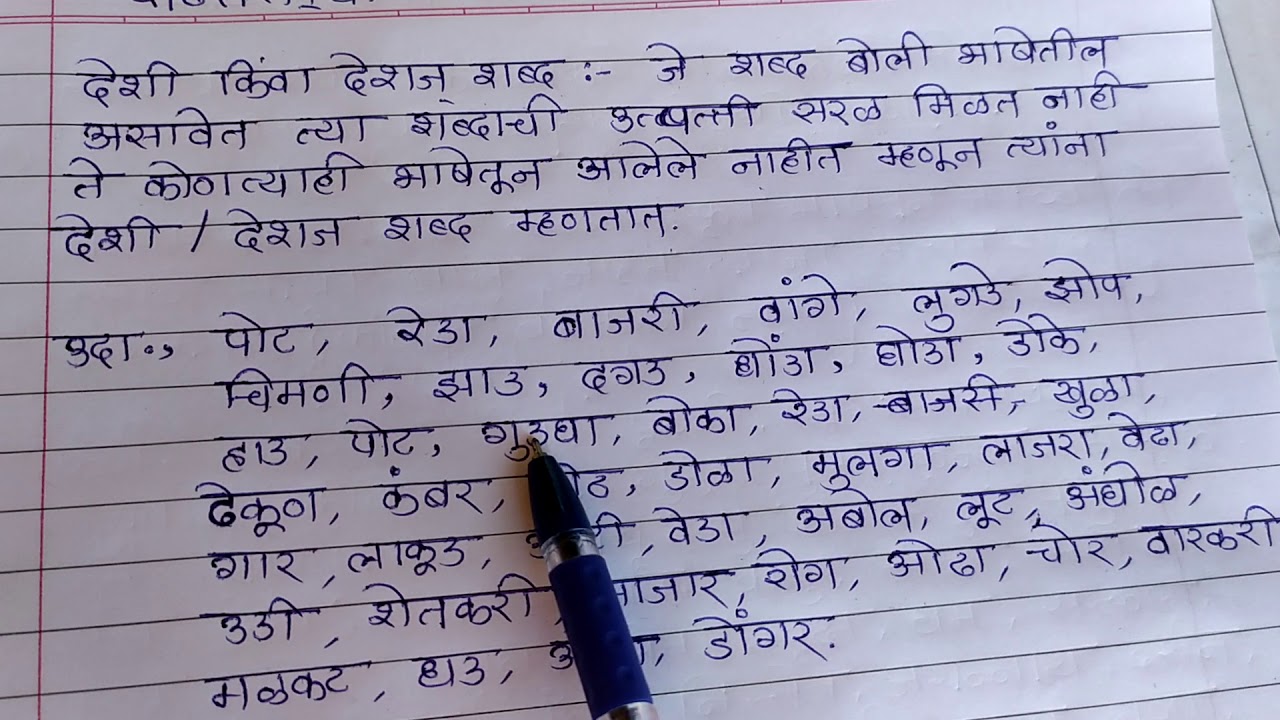 देशी किंवा देशज शब्द :- जे शब्द बोली भाषेतील
असावेत त्या शब्दाची उत्पत्ती सरळ मिळत नाही
ते कोणत्याही भाषेतून आलेले नाहीत म्हणून त्यांना
देशी / देशज शब्द म्हणतात.
उदा., पोट, रेडा, बाजरी, वांगे, लुगडे, झोप,
चिमणी, झाड, दगड, धोंडा, घोडा, डोके,
हाड, पोट, गुडघा, बोका, रेडा, बाजरी, खुळा,
ढेकूण, कंबर, डोळा, मुलगा, लाजरा, वेढा,
गार, लाकूड, वेडा, अबोल, लूट, अंघोळ,
उडी, शेतकरी, रोग, ओढा, चोर, वारकरी
मळकट, डोंगर.